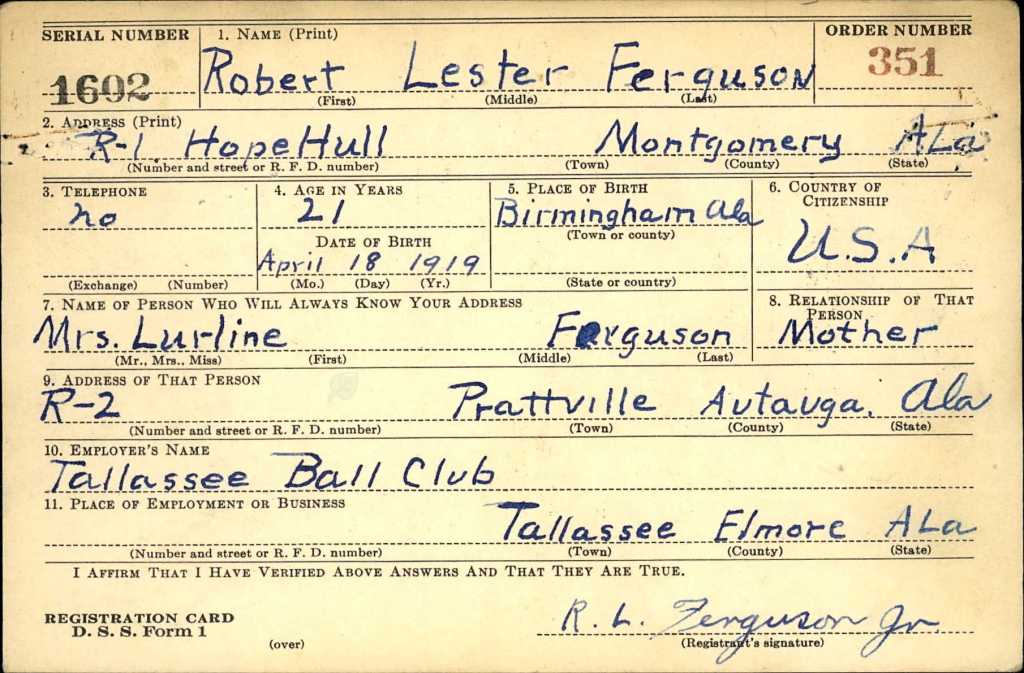 SERIAL NUMBER 1. NAME (Print) ORDER NUMBER
1602 Robert Lester Ferguson 351
(First) (Middle) (Last)
2. ADDRESS (Print)
R-1 HopeHull Montgomery ALa
(Number and street or R. F. D. number) (Town) (County) (State)
3. TELEPHONE 4. AGE IN YEARS 5. PLACE OF BIRTH 6. COUNTRY OF CITIZENSHIP
no 21 Birmingham Ala U.S.A
DATE OF BIRTH (Town or county)
April 18 1919
(Exchange) (Number) (Mo.) (Day) (Yr.) (State or country)
7. NAME OF PERSON WHO WILL ALWAYS KNOW YOUR ADDRESS 8. RELATIONSHIP OF THAT PERSON
Mrs. Lurline Ferguson Mother
(Mr., Mrs., Miss) (First) (Middle) (Last)
9. ADDRESS OF THAT PERSON
R-2 Prattville Autauga. Ala
(Number and street or R. F. D. number) (Town) (County) (State)
10. EMPLOYER'S NAME
Tallassee Ball Club
11. PLACE OF EMPLOYMENT OR BUSINESS
Tallassee Elmore ALa
(Number and street or R. F. D. number) (Town) (County) (State)
I AFFIRM THAT I HAVE VERIFIED ABOVE ANSWERS AND THAT THEY ARE TRUE.
REGISTRATION CARD
D. S. S. Form 1 R. L. Ferguson Jr.
(over) (Registrant's signature)